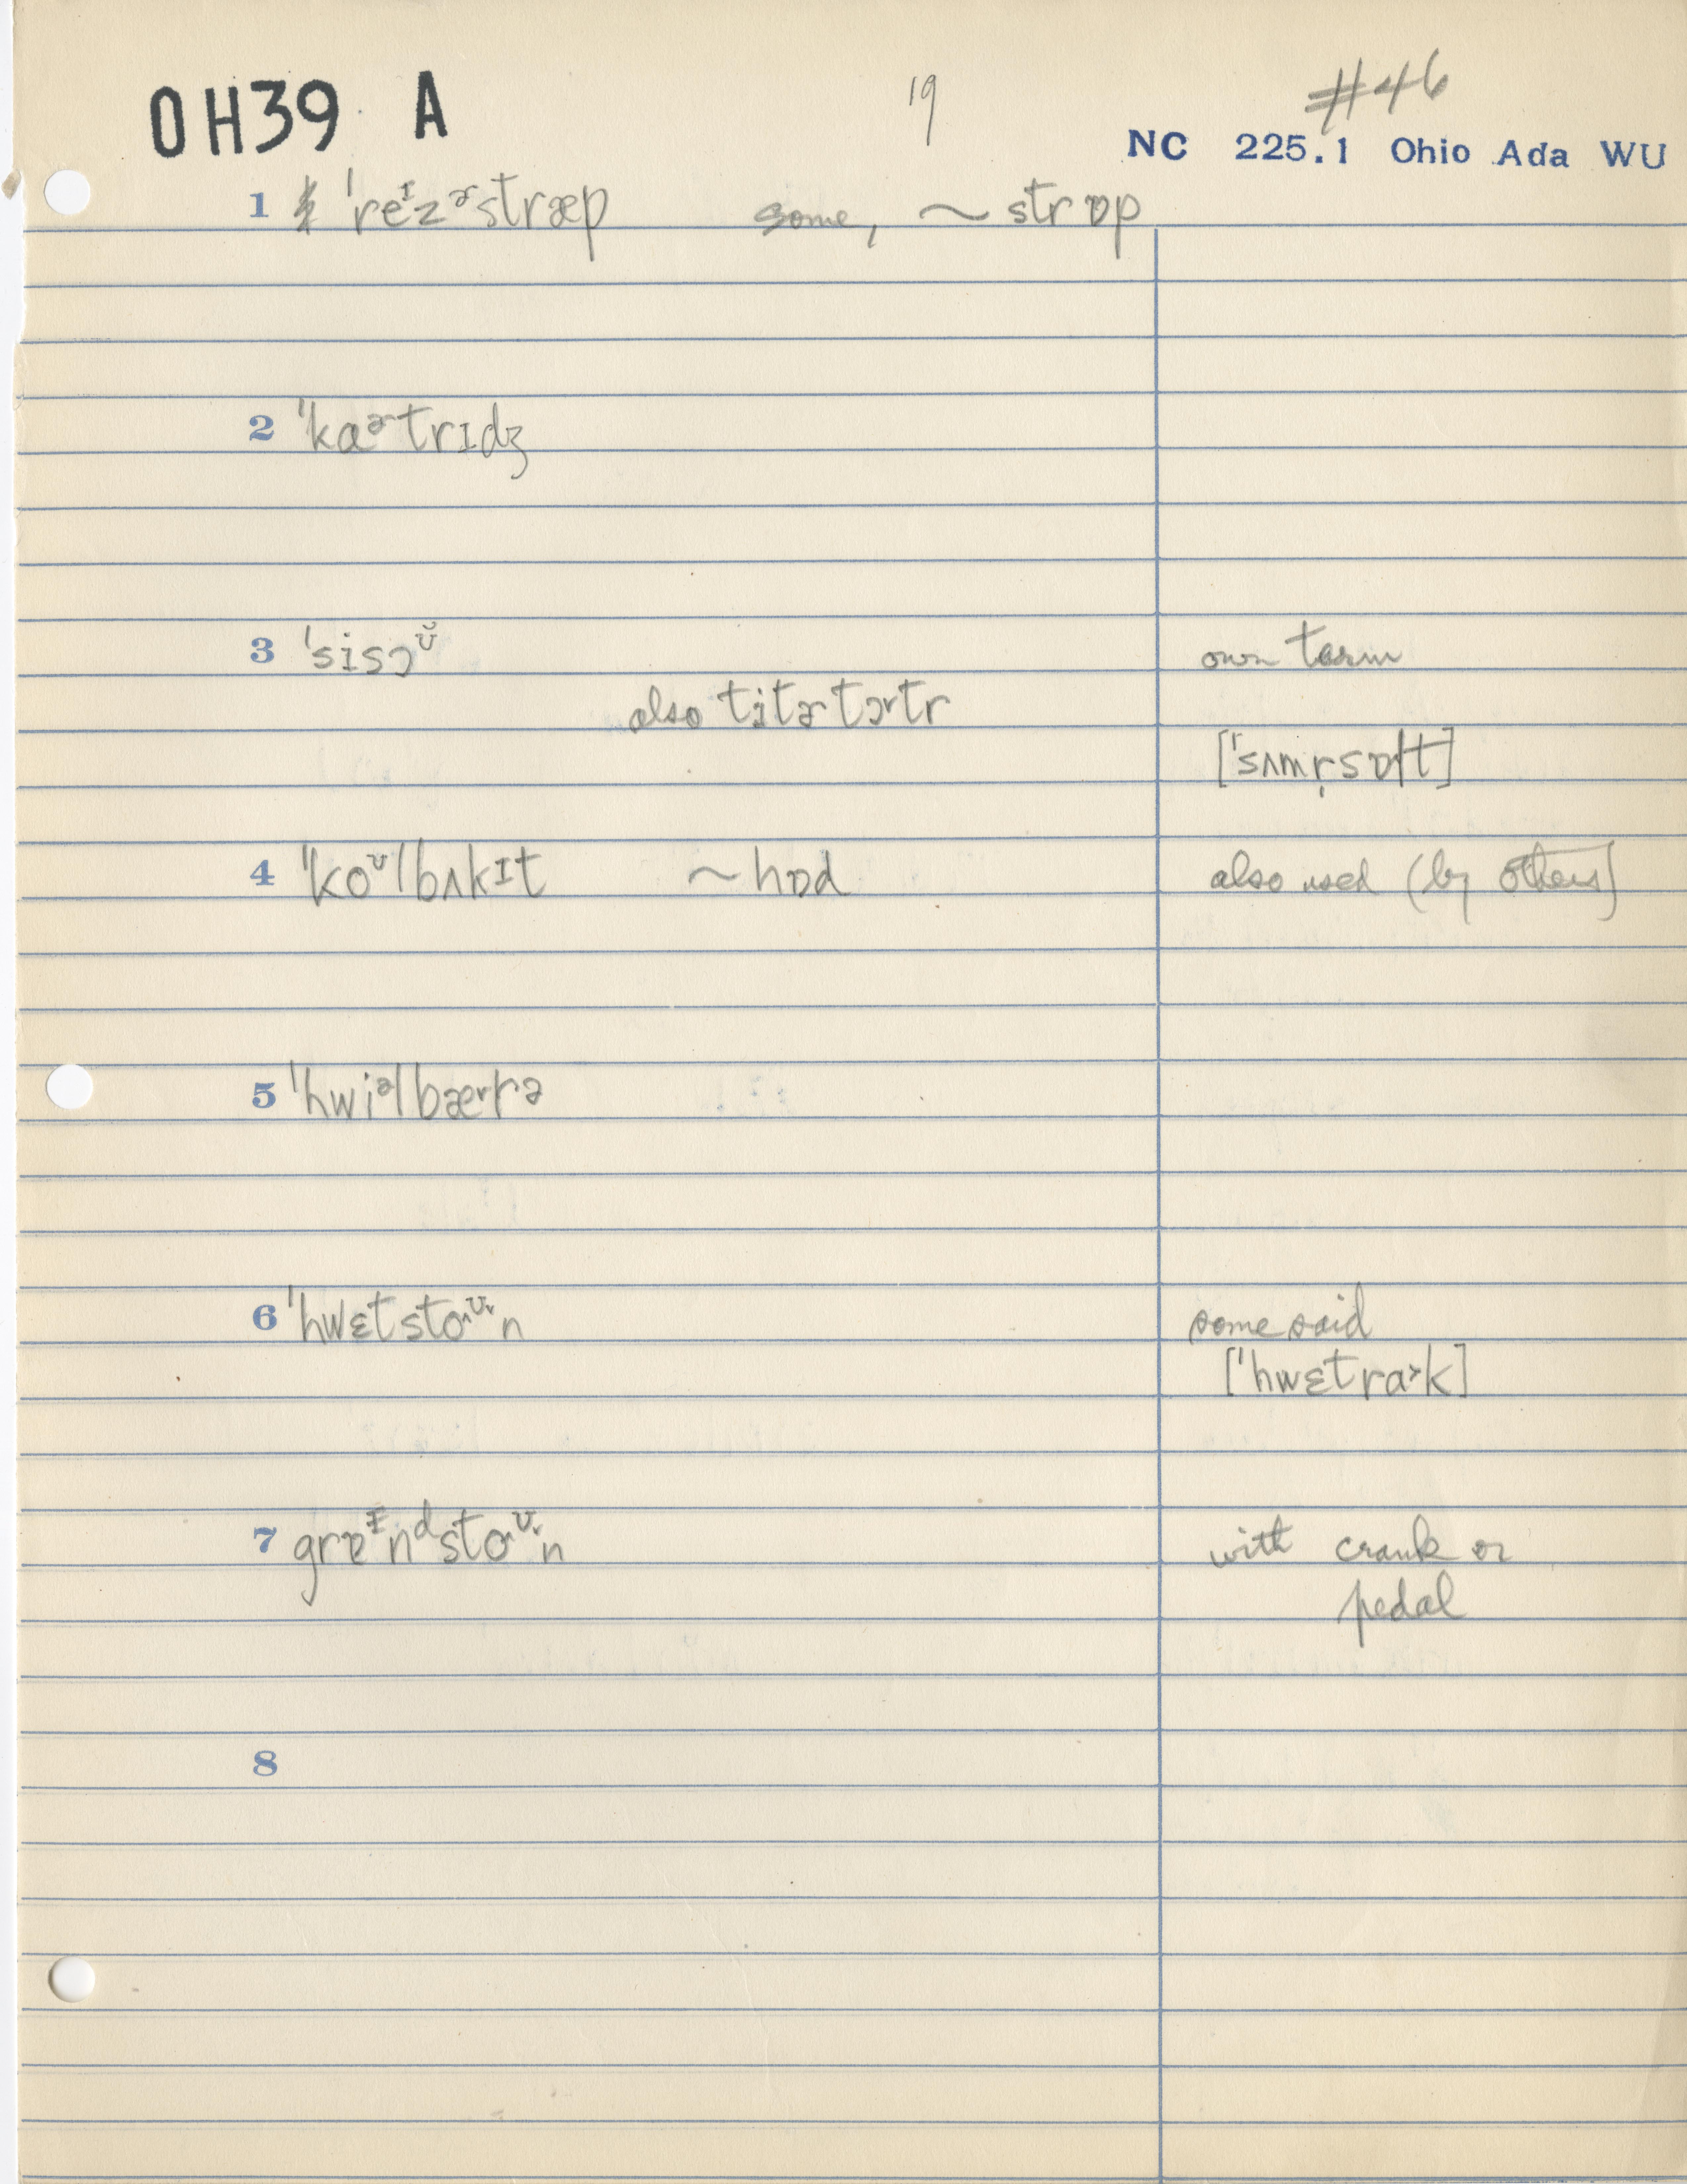 OH39 A 19 #46
NC 225.1 Ohio Ada WU
1 ˈreᶦzᵊ˞stræp some, ~ strɒp
2 ˈkaᵊ˞trɪdʒ
3 ˈsisɔᵁ̆ own term
also titɚtɔ˞tr
[ˈsʌmr̩sɒlt]
4 ˈkoᵁlbʌkɪt ~hɒd also used (by others)
5 ˈhwiᵊlbæ˞rə
6 ˈhwɛtstoᵁn some said
[ˈhwɛtra˞k]
7 grɐᶦnᵈstoᵁn with crank or
pedal
8